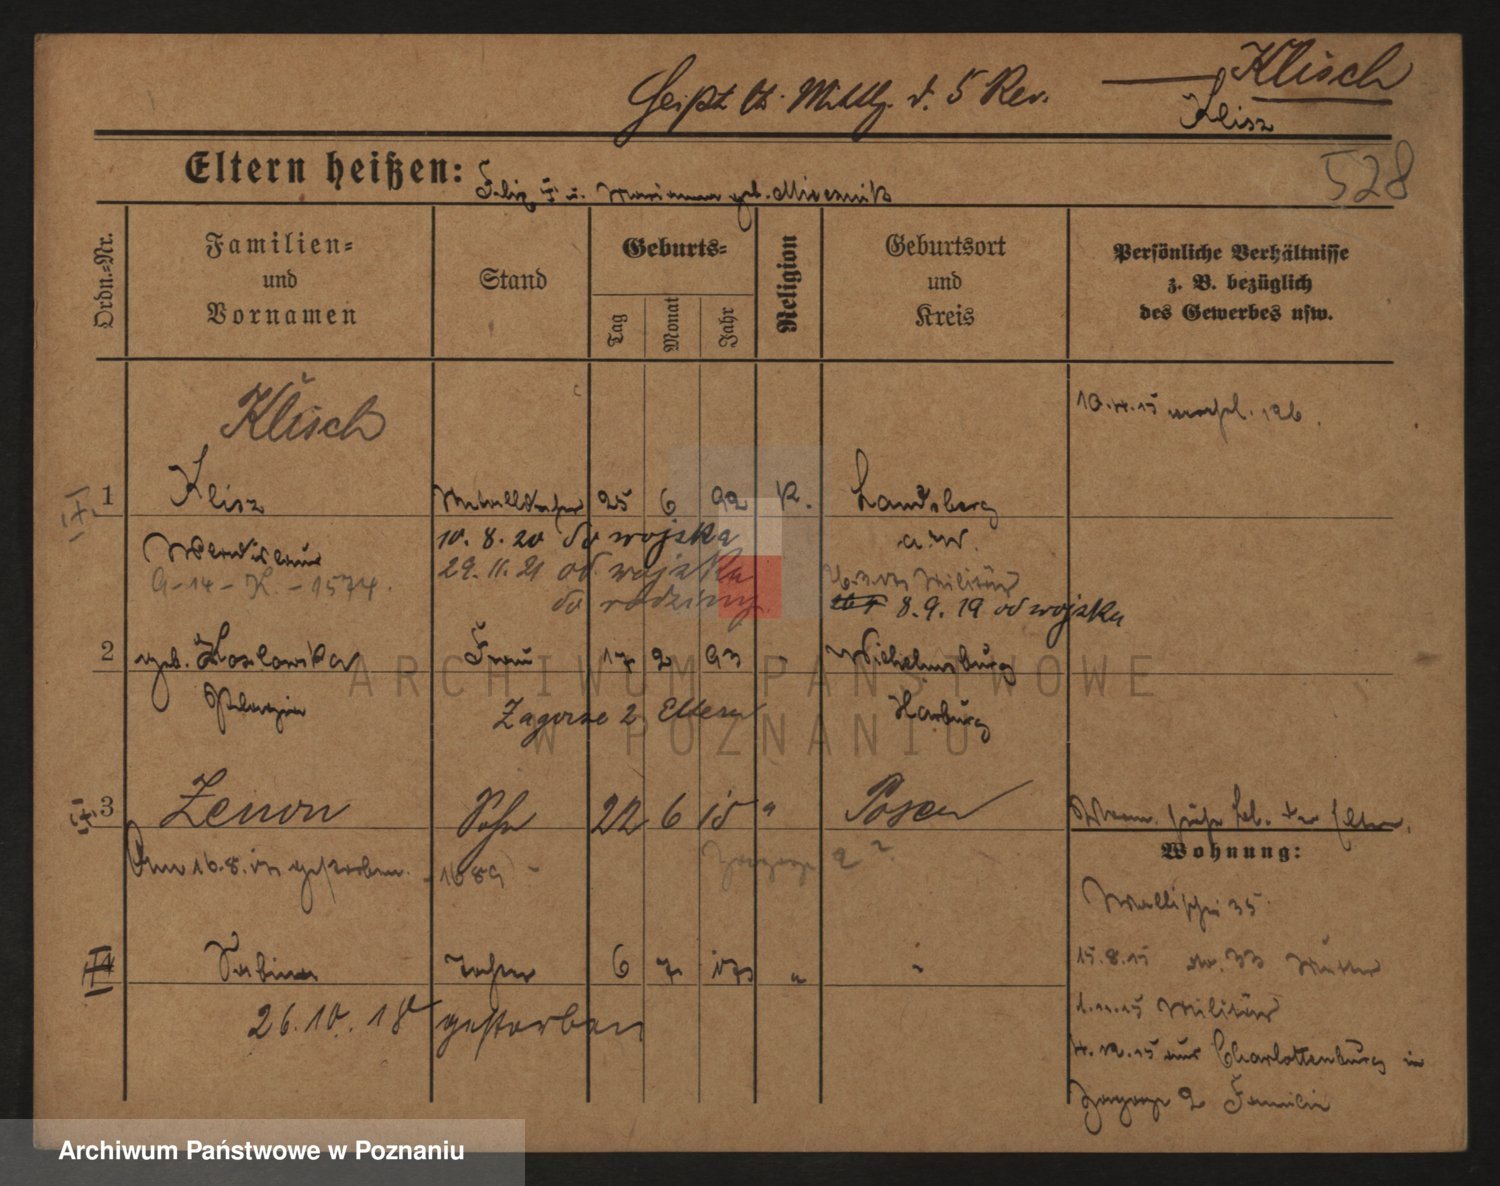 Heißt lt. Mittlg. d. 5 Rev. — Klisch
Klisz
528
Eltern heißen: Felix u. Marianna geb. Mivesnik
Ordn.-Nr.
Familien- und Vornamen
Stand
Geburts-
Tag
Monat
Jahr
Religion
Geburtsort und Kreis
Persönliche Verhältnisse z. B. bezüglich des Gewerbes usw.
Klisch
10.4.15 126.
1 Klisz 25 6 92 K. Landsberg
Wladislaus 10. 8. 20 do wojska a.W.
G-14-K.-1574. 29. 11. 21 od wojska Militär
do rodziny 8. 9. 19 od wojska
2 geb. Koslowska Frau 17 2 93 " Wilhelmsburg
Pelagia Zagorze 2 Eltern Harburg
3 Zenon Sohn 22 6 15 " Posen
Wohnung:
Am 16.8.15 gestorben. 1689 Zagorze 2
Wallischei 35
4 Sabina Tochter 6 7 17 " "
15.8.15 33 Mutter
26. 10. 18 gestorben
1.11.15 Militär
4.12.15 aus Charlottenburg in
Zagorze 2 Familie
ARCHIWUM PAŃSTWOWE
W POZNANIU
Archiwum Państwowe w Poznaniu